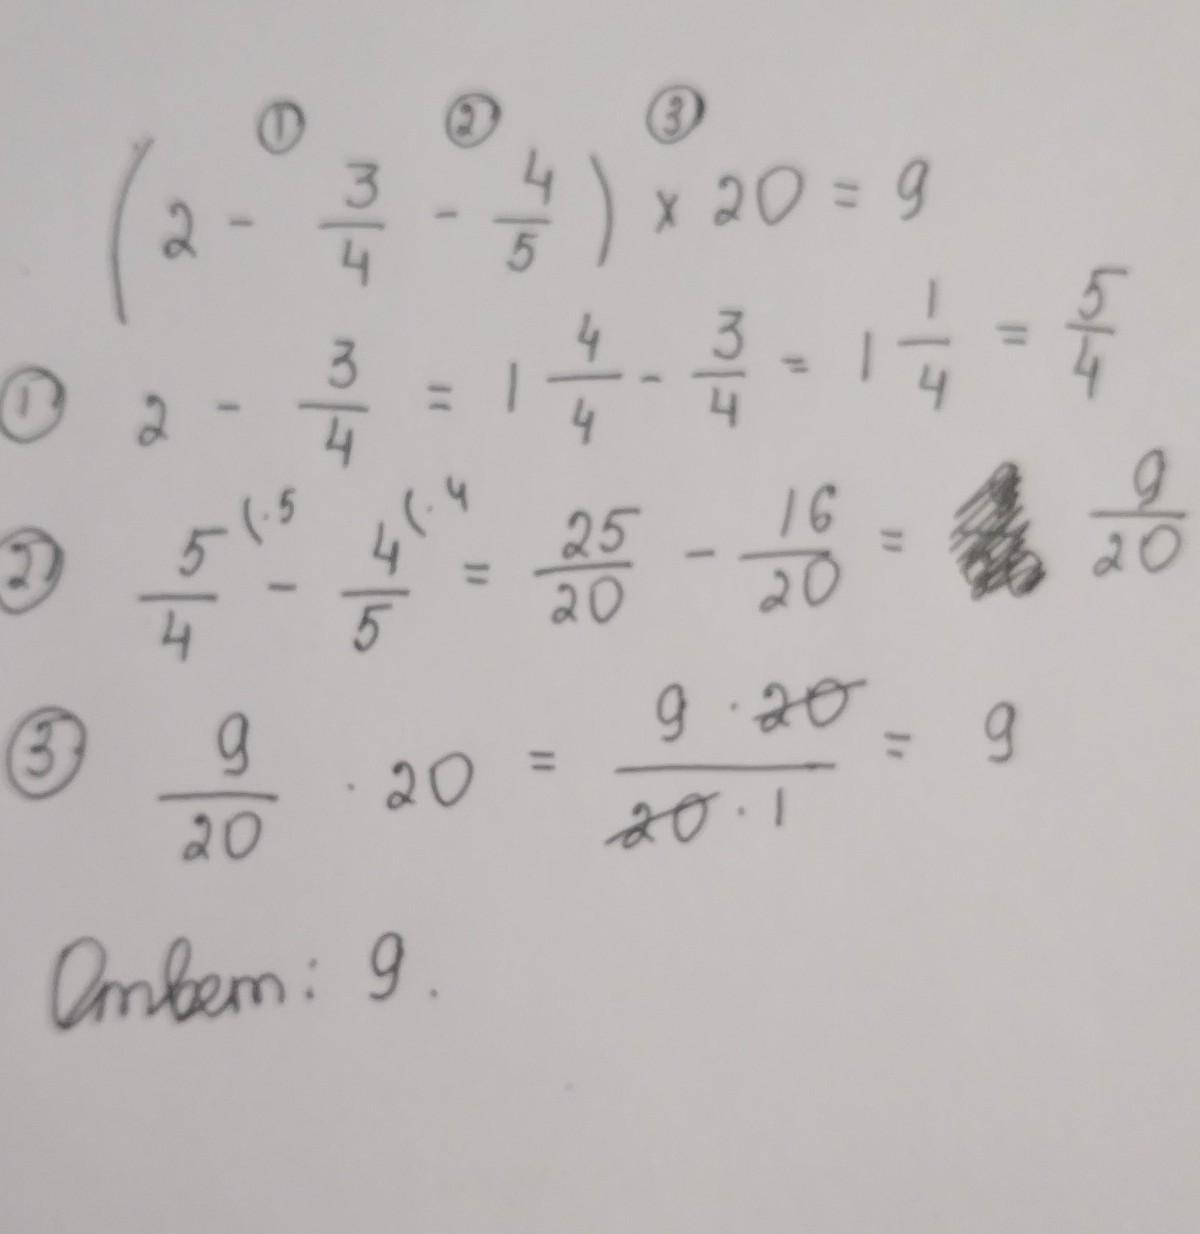 ① ② ③
(2 - 3/4 - 4/5) × 20 = 9
① 2 - 3/4 = 1 4/4 - 3/4 = 1 1/4 = 5/4
② 5/4 (·5 - 4/5 (·4 = 25/20 - 16/20 = 9/20
③ 9/20 · 20 = 9 · 20 / 20 · 1 = 9
Ответ: 9.